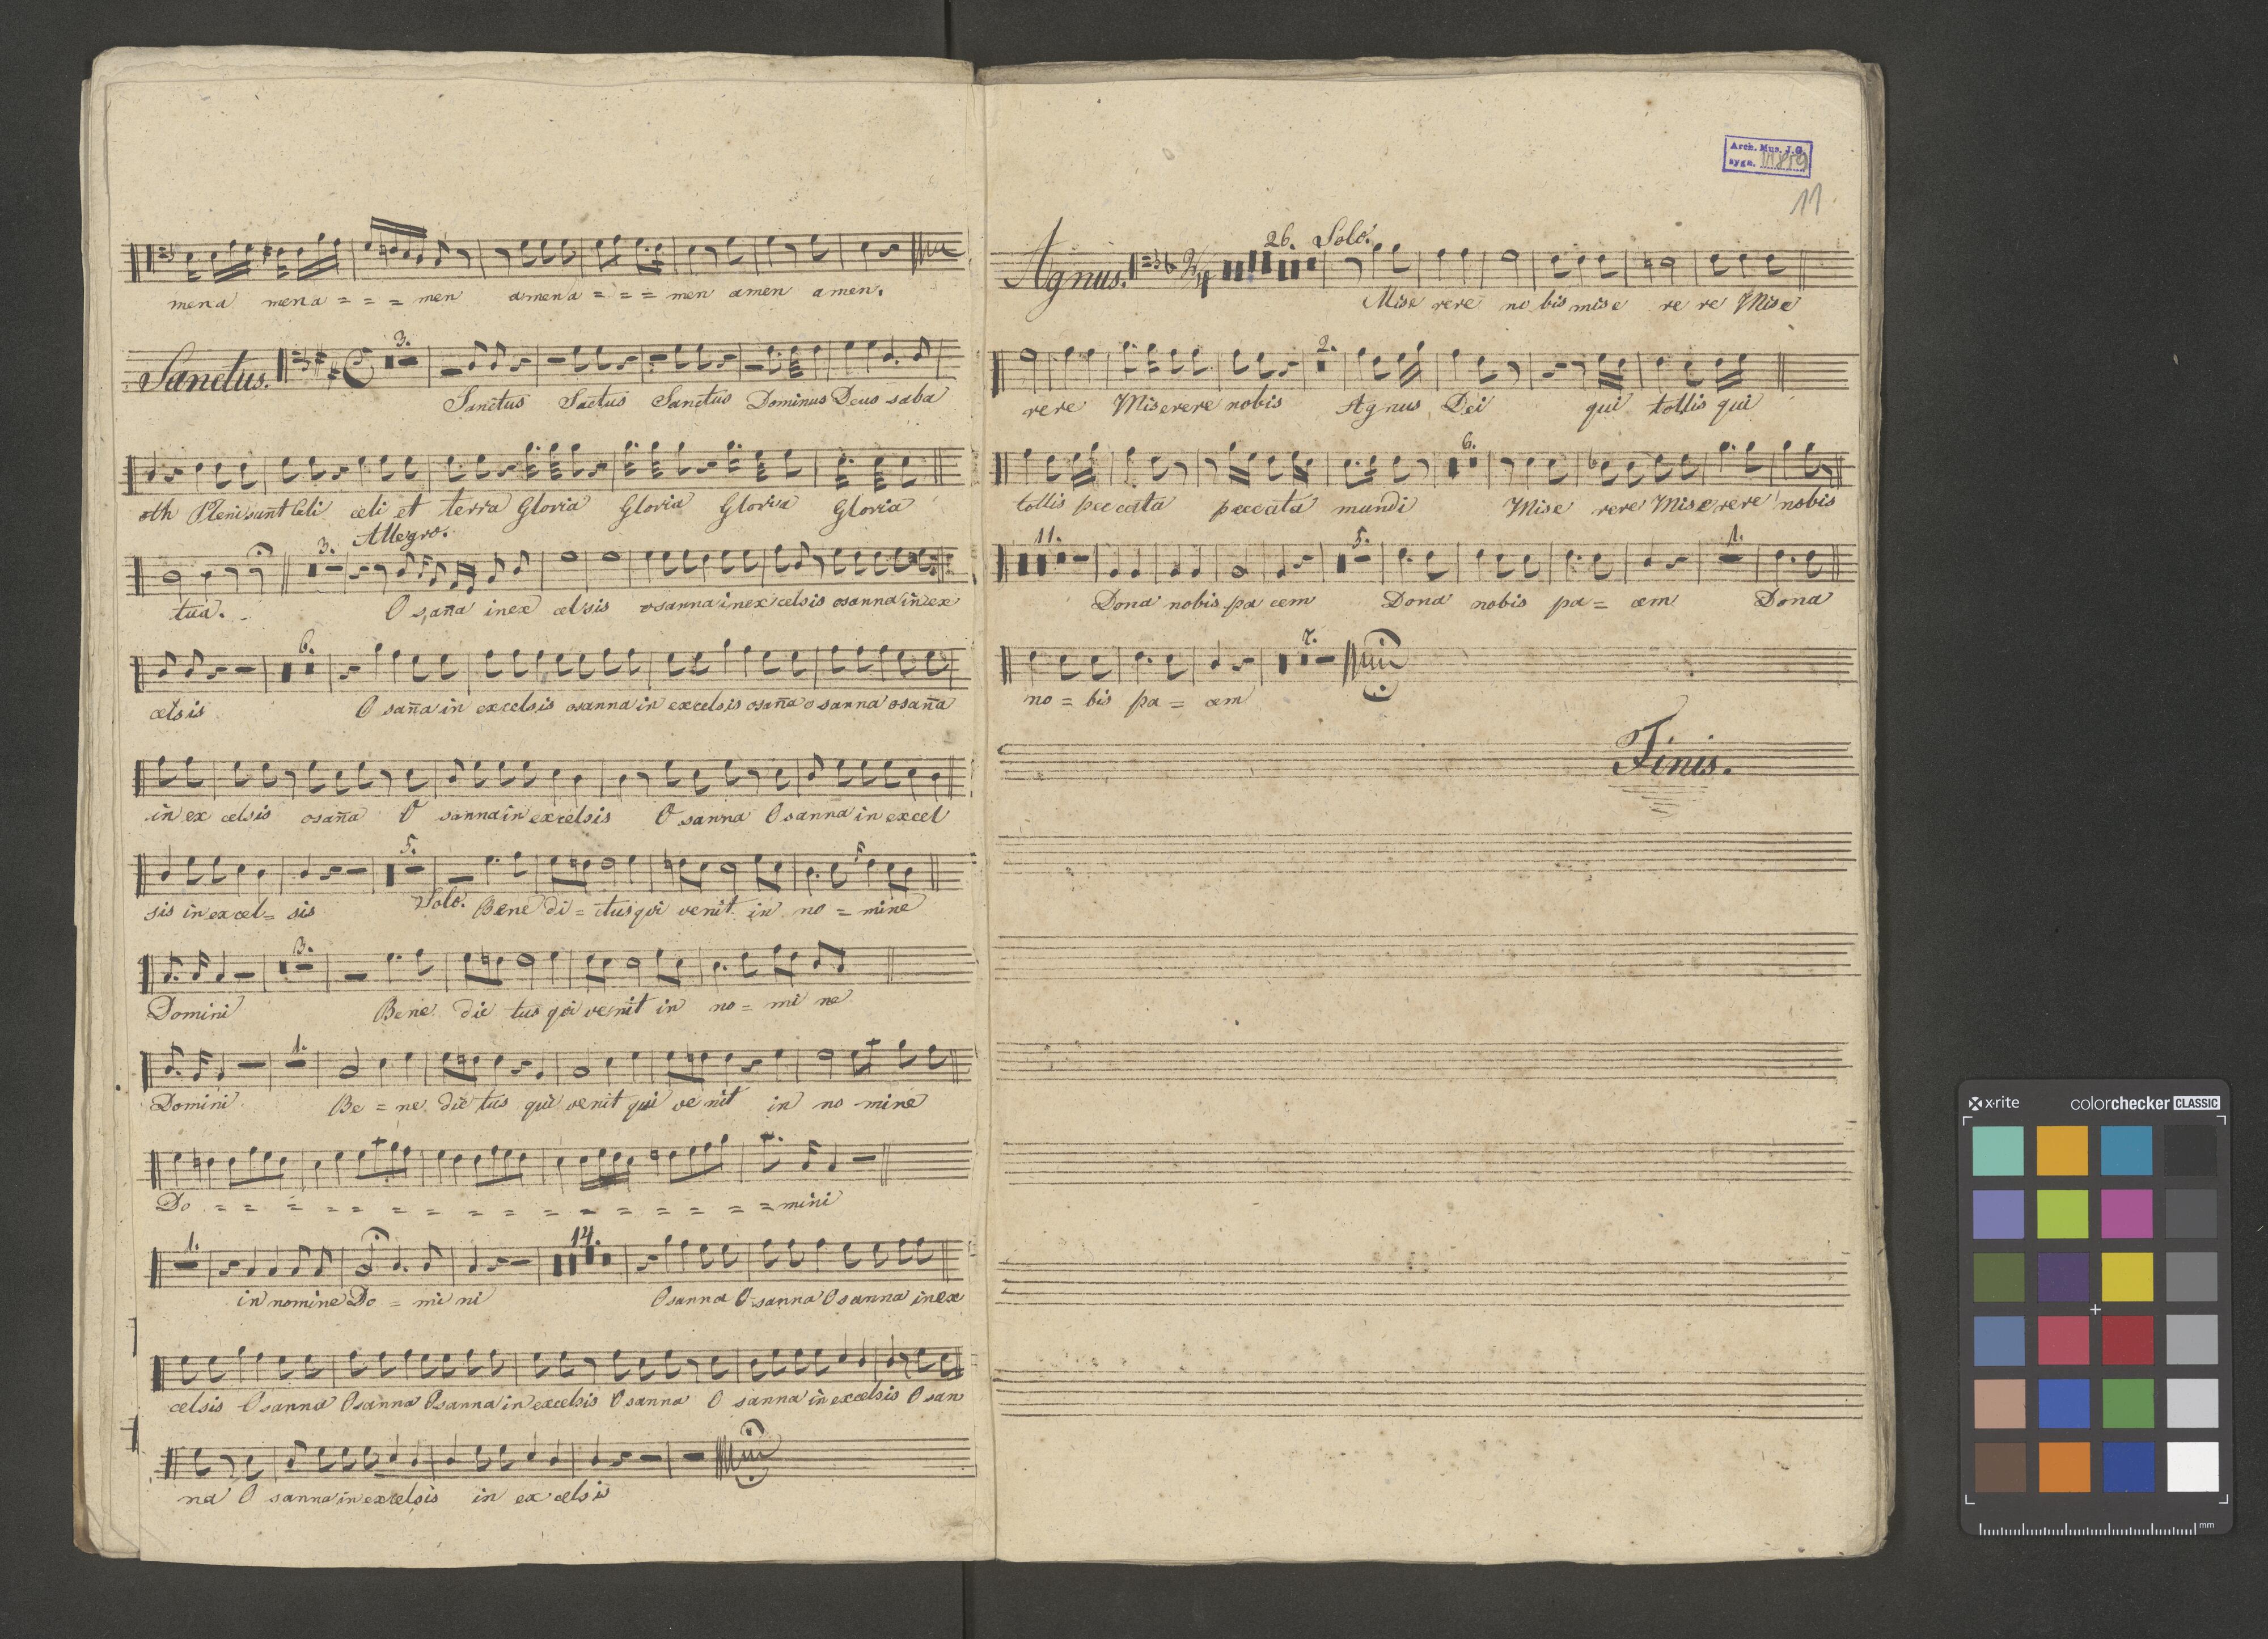 mena mena = = = men amena = = = men amen amen.
3.
Sanctus.
Sanctus Sactus Sanctus Dominus Deus saba
oth Pleni sunt Celi celi et terra Gloria Gloria Gloria Gloria
3. Allegro.
tua. O saña inex celsis osanna inex celsis osanna in ex
6.
celsis O saña in excelsis osanna in excelsis osaña o sanna osaña
in ex celsis osaña O sanna in excelsis O sanna O sanna in excel
5.
sis in excel = sis Solo. Bene di = ctus qvi venit in no = mine
3.
Domini Bene dic tus qvi venit in no = mi ne
1.
Domini Be = ne dic tus qui venit qui ve nit in no mine
Do = = = = = = = = = = = = = = = = mini
1. 14.
in nomine Do = mi ni O sanna O sanna O sanna in ex
celsis O sanna O sanna O sanna in excelsis O sanna O sanna in excelsis O san
na O sanna in excelsis in ex celsis
Arch. Mus. J.G.
sygn. 
11
26. Solo.
Agnus. 2/4
Mise rere no bis mise re re Mise
2.
rere Miserere nobis Agnus Dei qui tollis qui
6.
tollis peccata peccata mundi Mise rere Mise rere nobis
11. 5. 1.
Dona nobis pa cem Dona nobis pa = cem Dona
7.
no = bis pa = cem
Finis.
x-rite colorchecker CLASSIC
mm